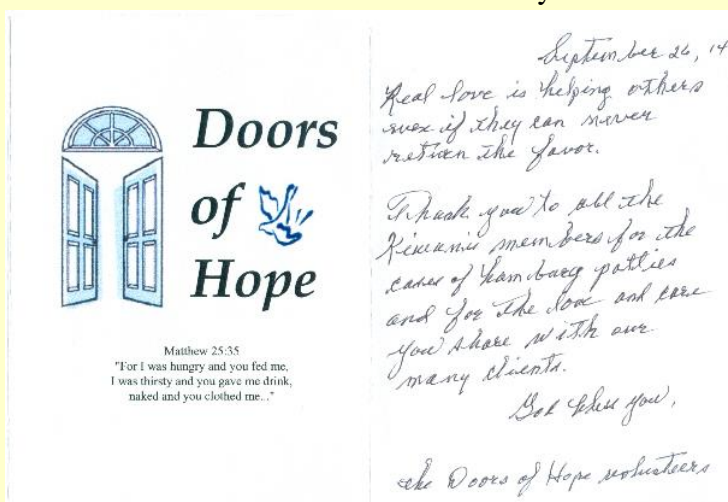 Doors
of
Hope
Matthew 25:35
"For I was hungry and you fed me,
I was thirsty and you gave me drink,
naked and you clothed me..."
September 26, '14
Real love is helping others
even if they can never
return the favor.
Thank you to all the
Kiwanis members for the
cases of hamburg patties
and for the love and care
you share with our
many clients.
God bless you,
the Doors of Hope volunteers